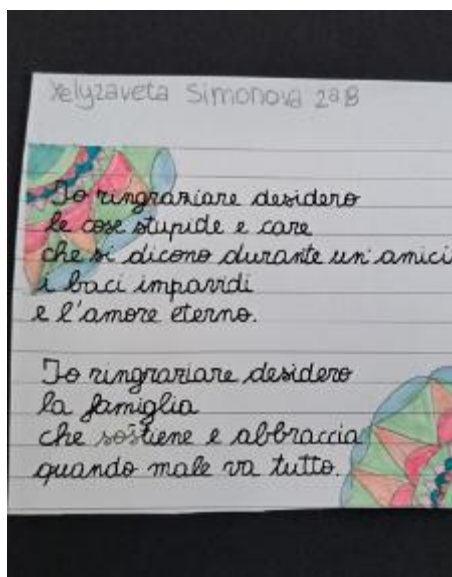 Yelyzaveta Simonova 2aB
Io ringraziare desidero
le cose stupide e care
che si dicono durante un'amici
i baci impavidi
e l'amore eterno.
Io ringraziare desidero
la famiglia
che sostiene e abbraccia
quando male va tutto.